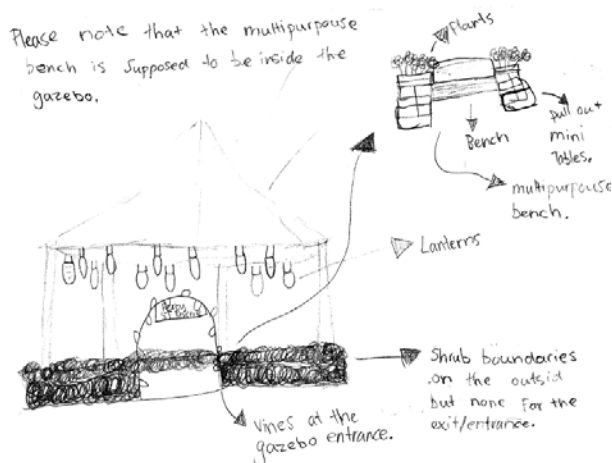 Please note that the multipurpouse
bench is supposed to be inside the
gazebo.
Plants
Bench
pull out
mini
tables.
multipurpouse
bench.
Lanterns
Shrub boundaries
on the outsid
but none for the
exit/entrance.
vines at the
gazebo entrance.